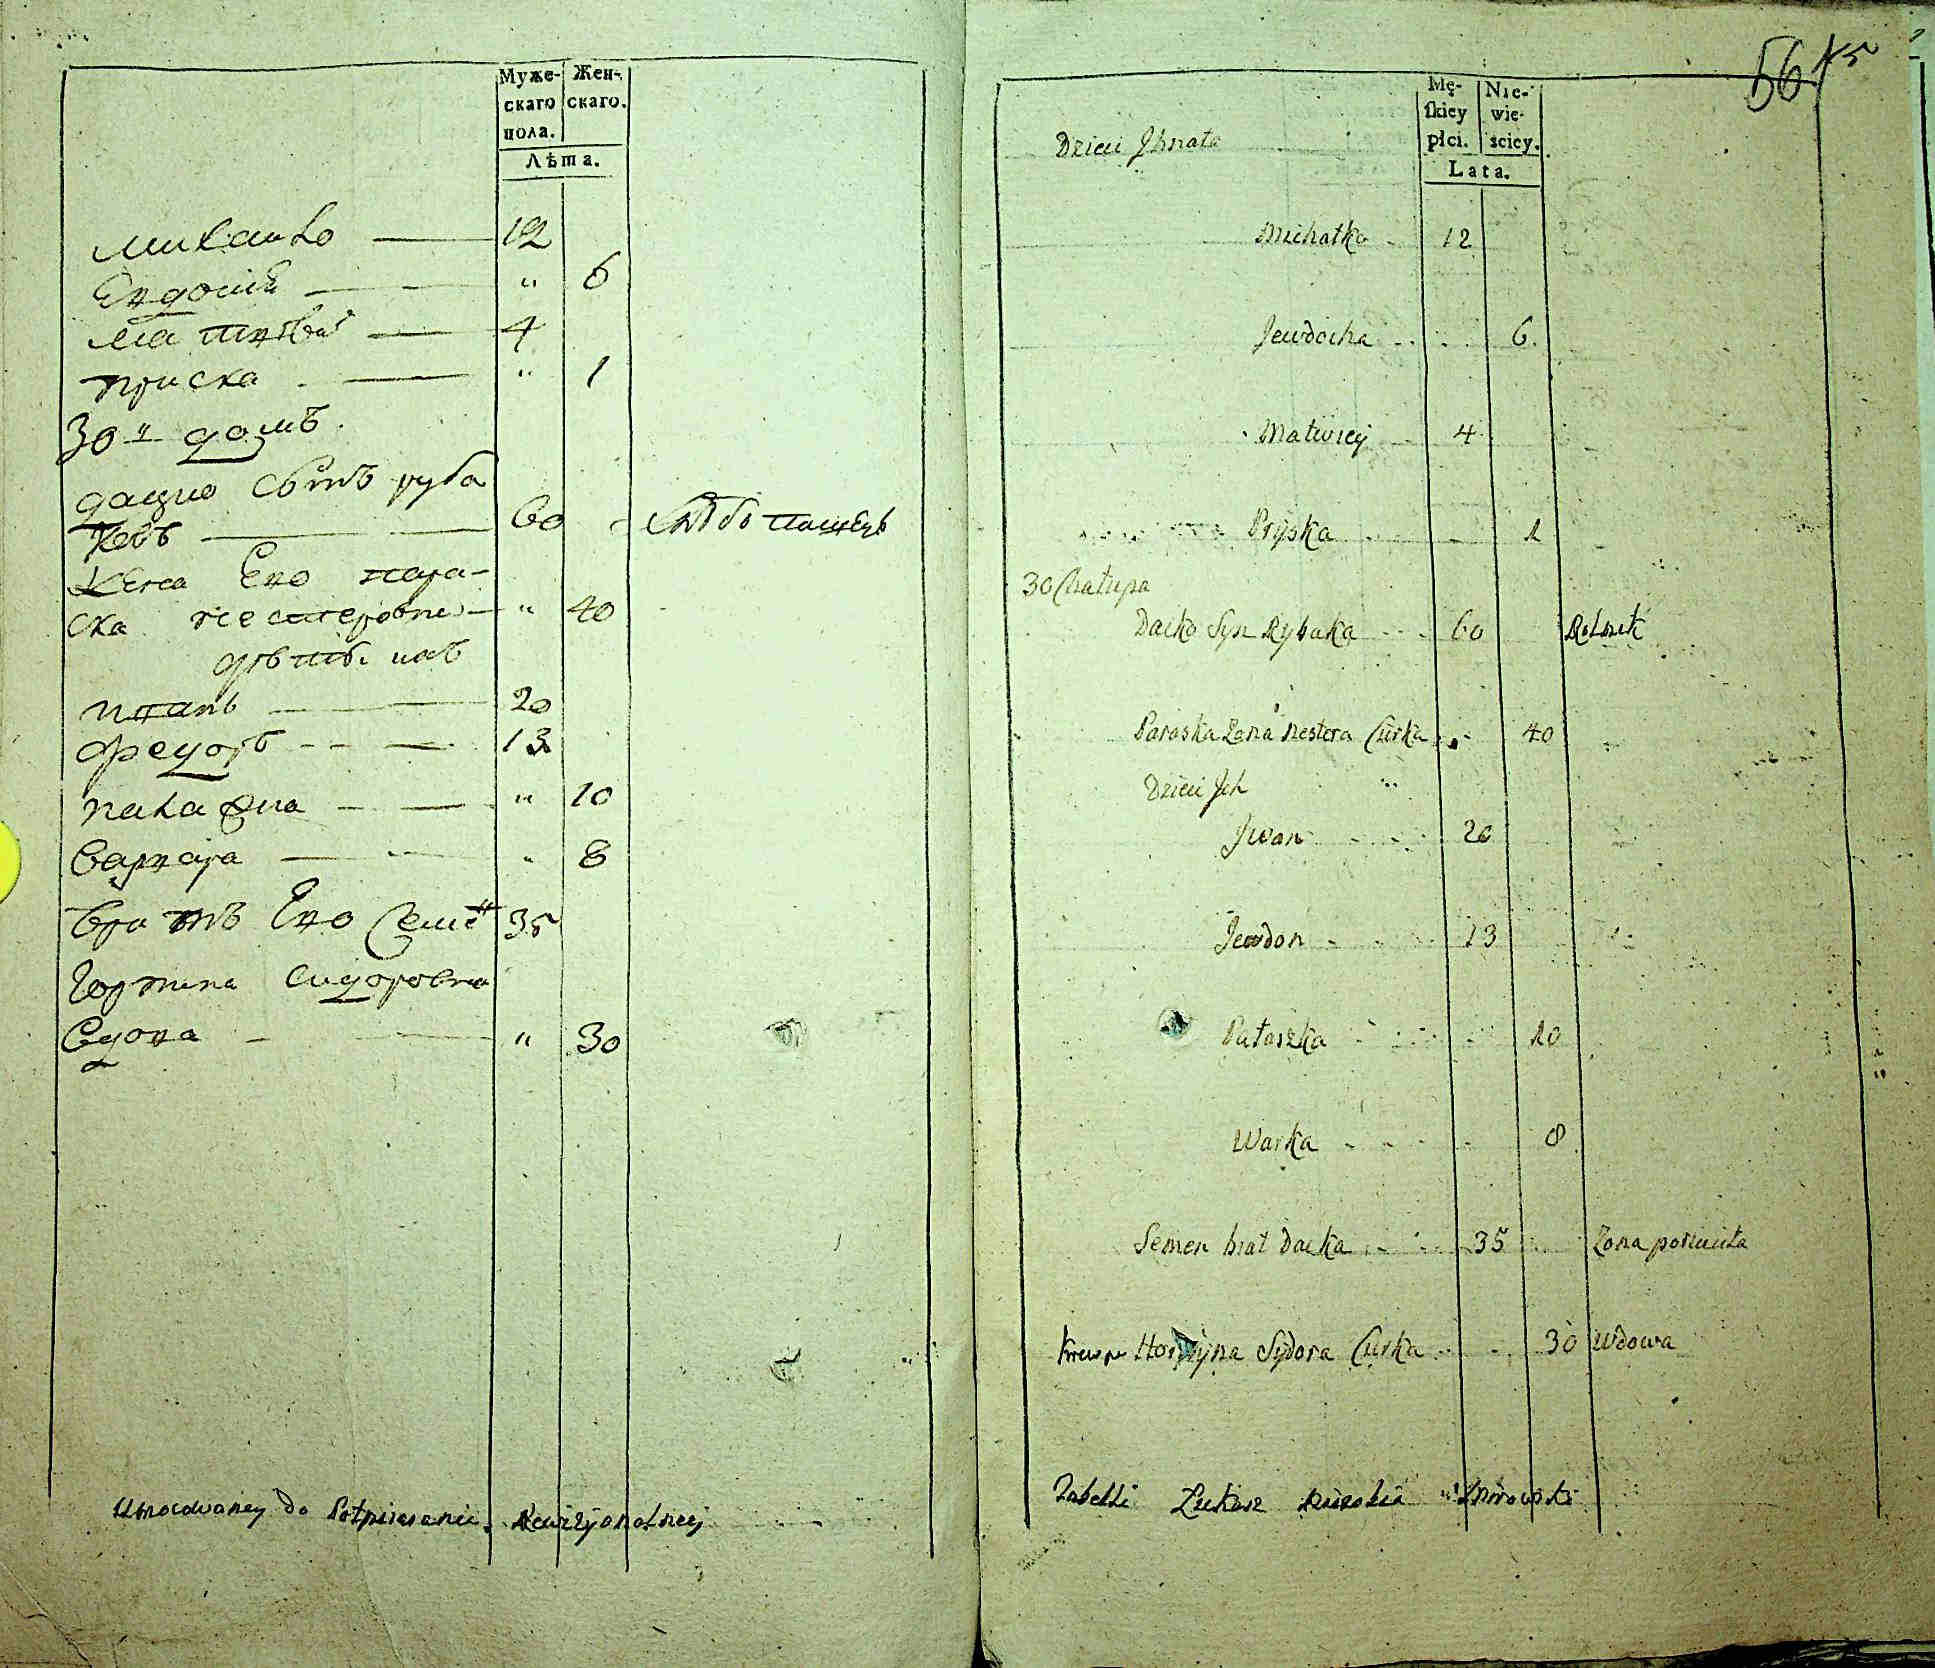 Муже-
скаго
пола.
Жен-
скаго.
Лѣта.
михайло 12
Евдокия " 6
Матвѣй 4
приска " 1
30й домъ
дацко сынъ рыба
ковъ 60 хлѣбопашецъ
жена Ево пара-
ска нестеровна " 40
дѣти ихъ
иванъ 20
федоръ 13
палажка " 10
варвара " 8
братъ Ево Семе 35
горпина сидоровна
вдова " 30
Umocowaney do Potpisania Rewizyonalney
56 45
Mę-
skiey
płci.
Nie-
wie-
sciey.
Lata.
Dzieci Ihnata
Michałko 12
Jewdocha 6
Matwiey 4
Pryska 1
30 Chałupa
Dacko Syn Rybaka 60 Rolnik
Paraska Żona Nestera Curka 40
Dzieci Ich
Iwan 20
Jewdon 13
Pałaszka 10
Warka 8
Semen brat Dacka 35 Żona porzuciła
Horpyna Sydora Curka 30 Wdowa
Tabelli Łukasz